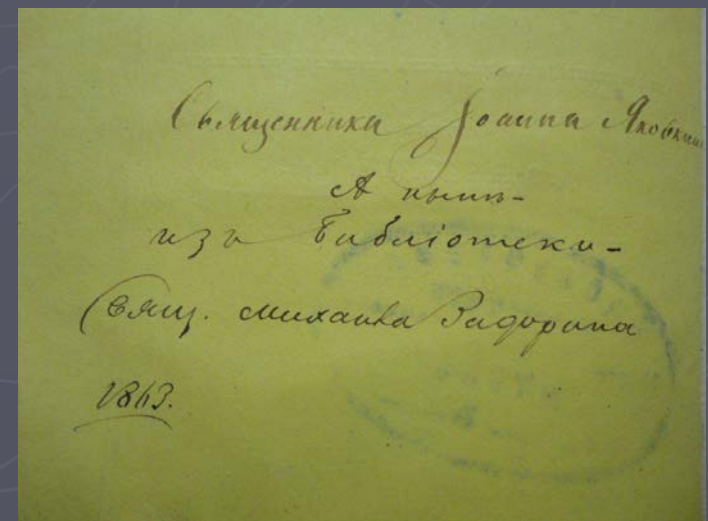 Священника Іоанна Яковкина
А нынѣ-
изъ Библіотеки-
Свящ. Михаила Задорина
1863.